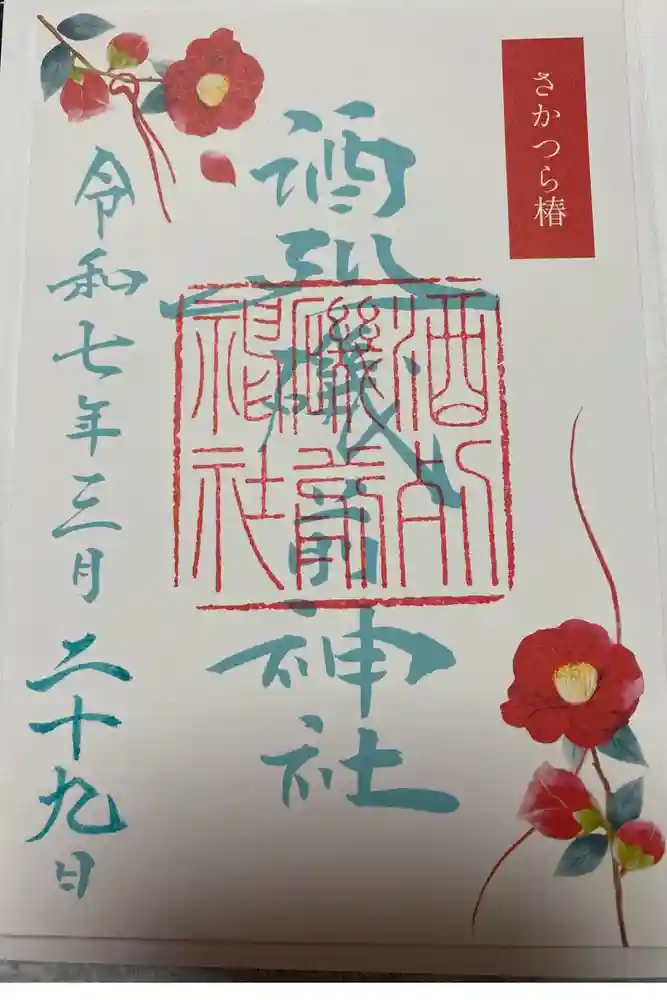 さかつら椿
酒列磯前神社
酒列
磯前
神社
令和七年三月二十九日